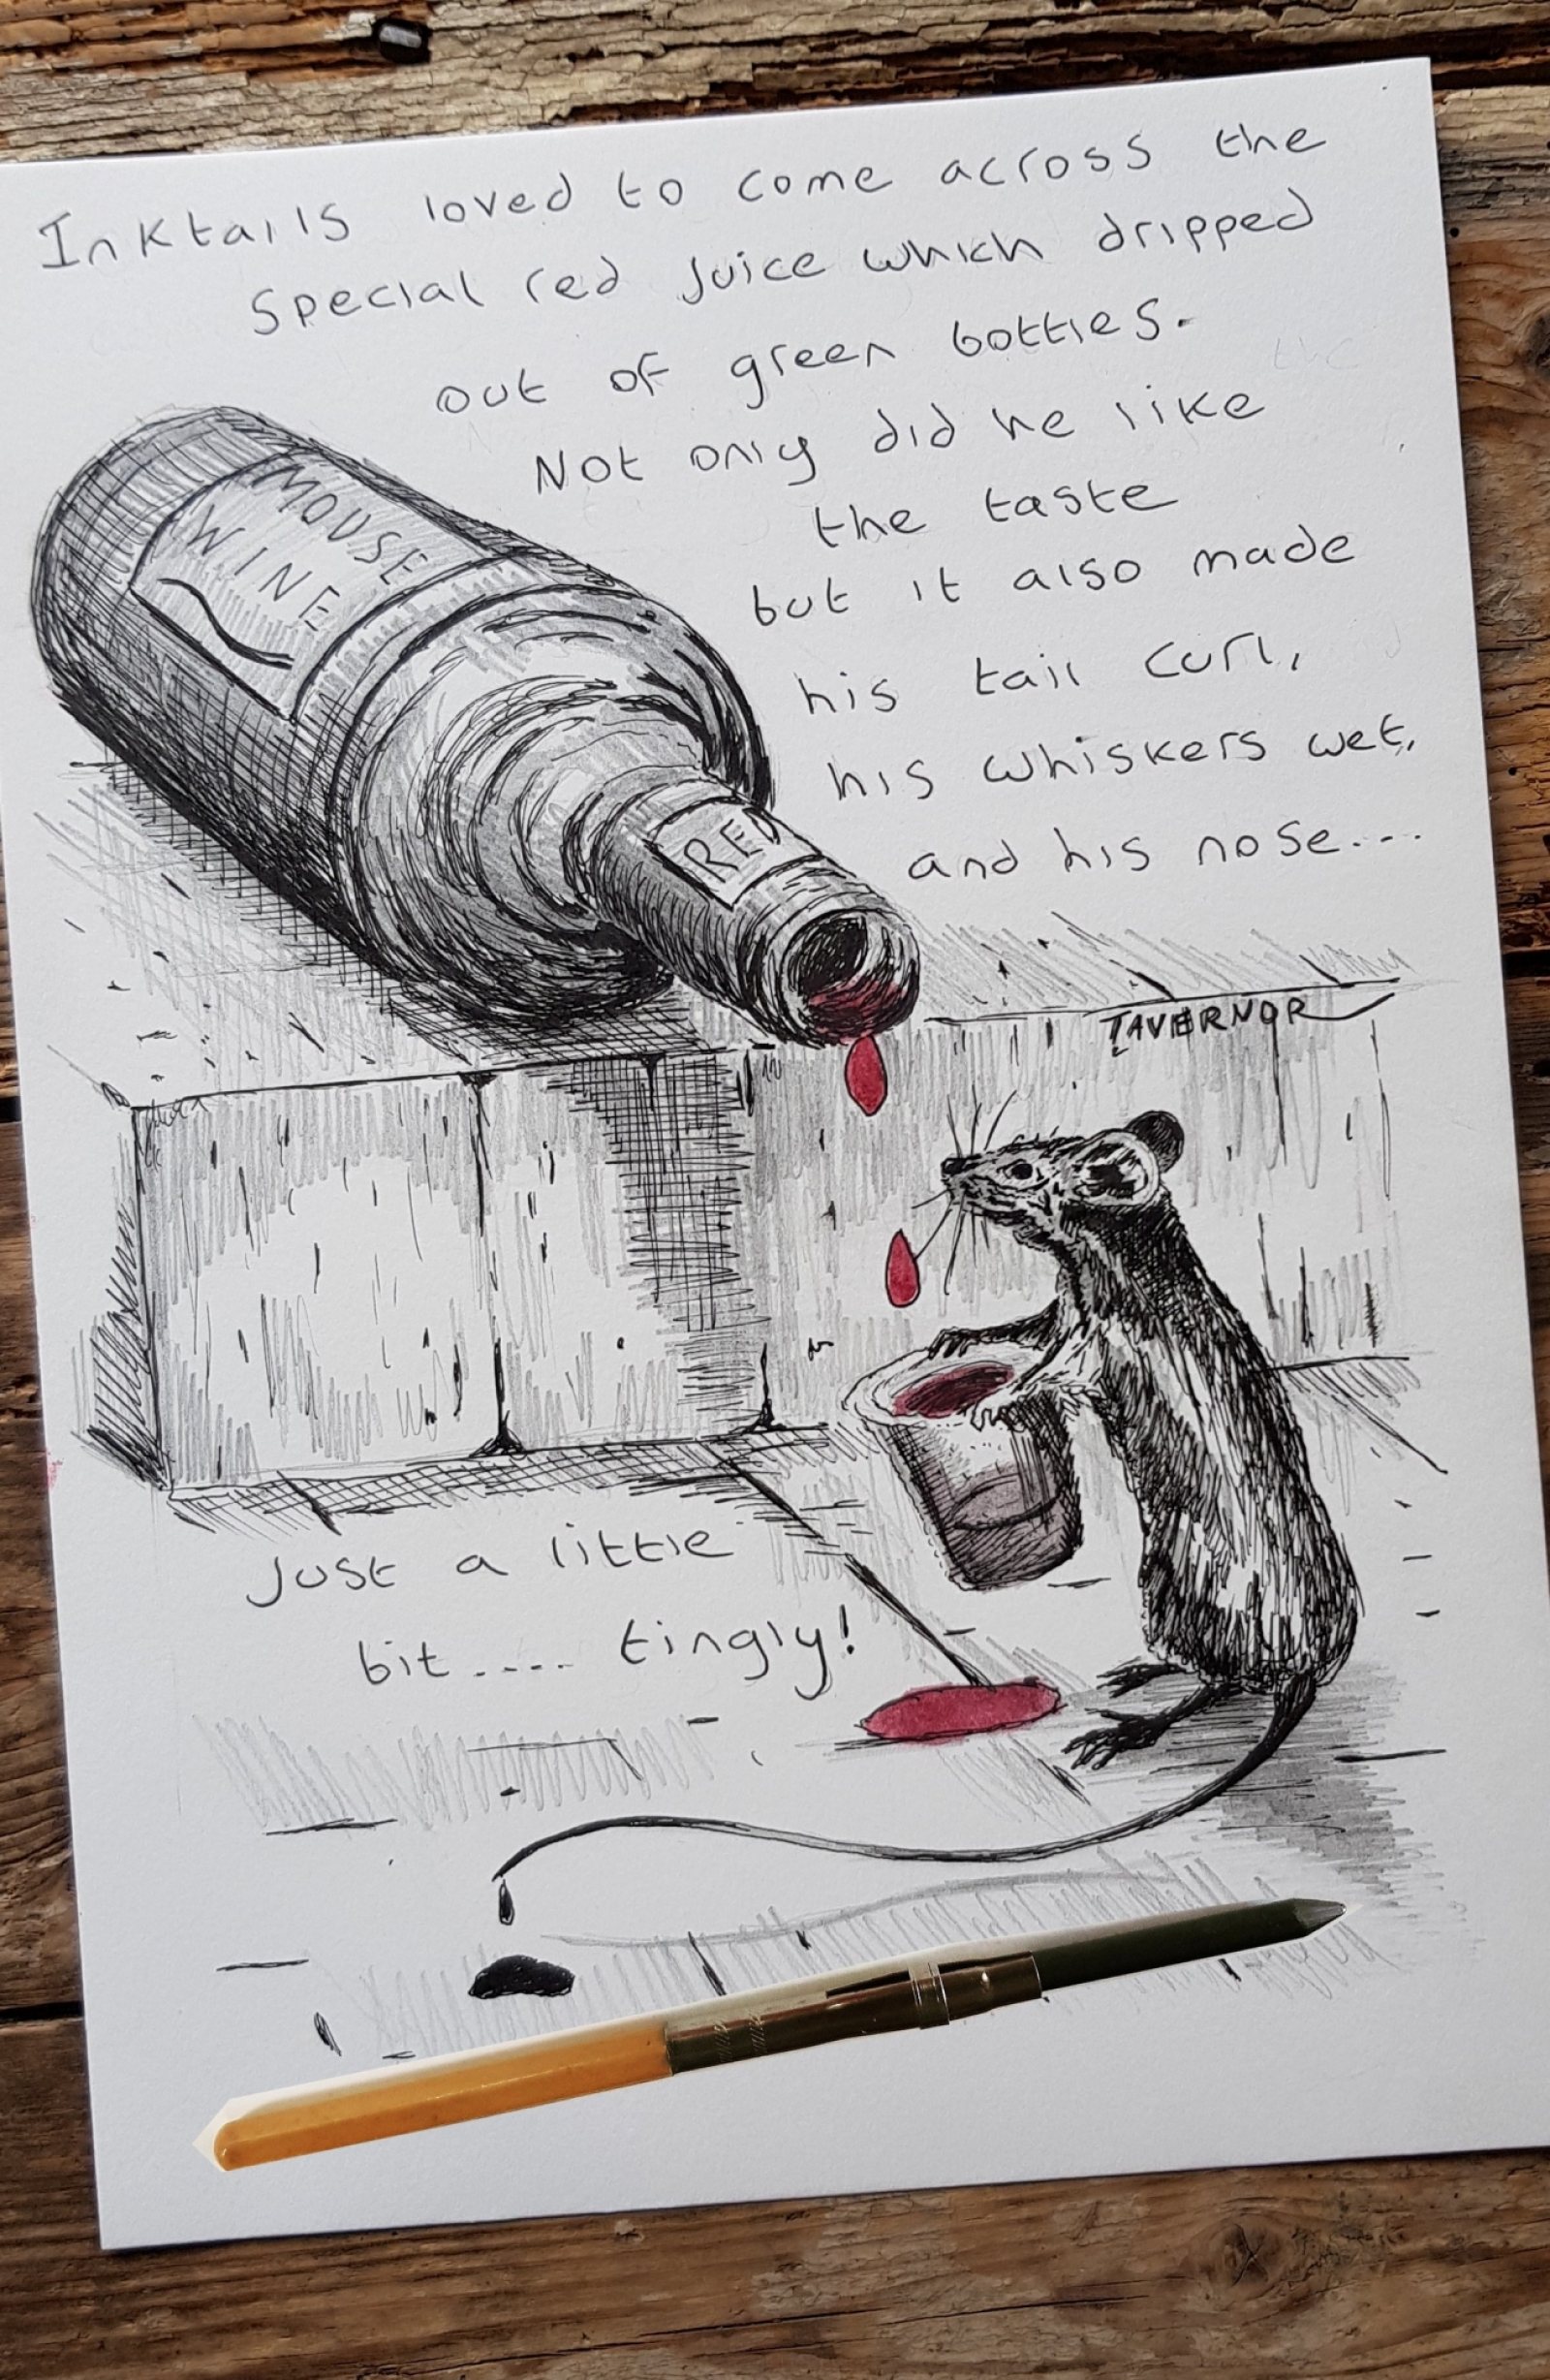 Inktails loved to come across the
Special red juice which dripped
out of green bottles.
Not only did he like
the taste
but it also made
his tail curl,
his whiskers wet,
and his nose....
MOUSE
WINE
RED
TAVERNOR
Just a little
bit..... tingly!